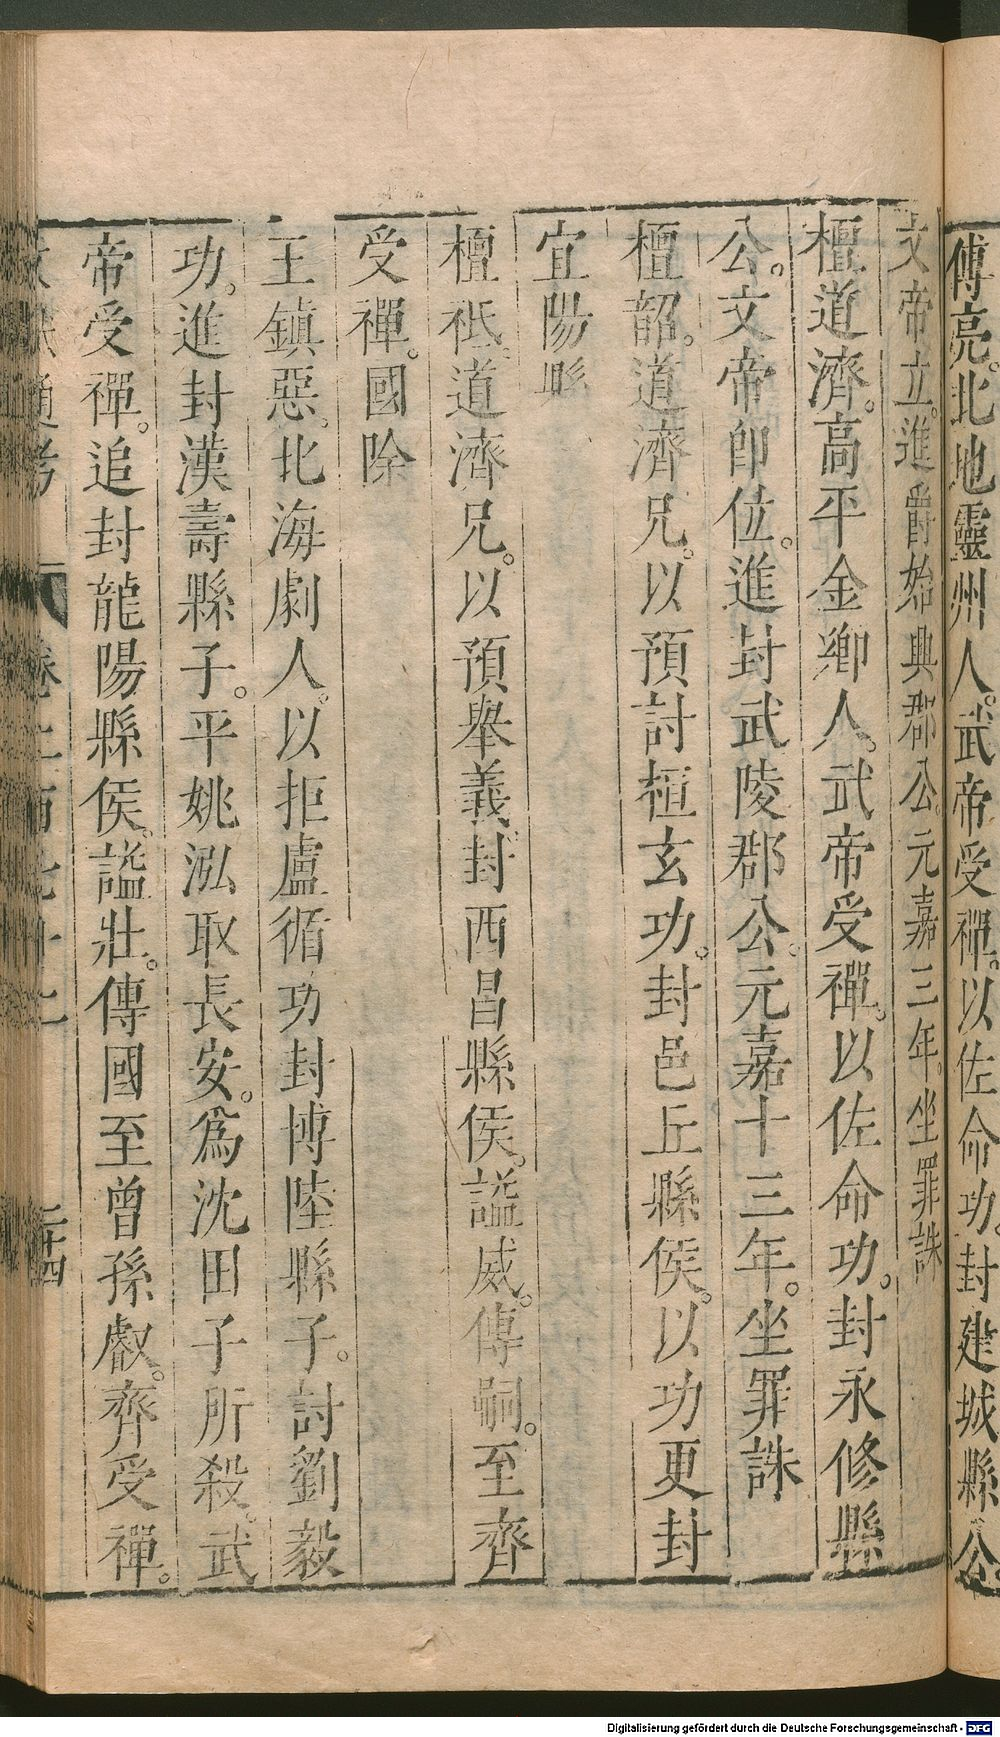 傅亮。北地靈州人。武帝受禪。以佐命功。封建城縣公。
文帝立。進爵始興郡公。元嘉三年。坐罪誅
檀道濟。高平金鄉人。武帝受禪。以佐命功。封永修縣
公。文帝即位。進封武陵郡公。元嘉十三年。坐罪誅
檀韶。道濟兄。以預討桓玄功。封邑丘縣侯。以功更封
宜陽縣
檀祗。道濟兄。以預舉義。封西昌縣侯。謚威。傳嗣。至齊
受禪。國除
王鎮惡。北海劇人。以拒盧循功封博陸縣子。討劉毅
功。進封漢壽縣子。平姚泓取長安。爲沈田子所殺。武
帝受禪。追封龍陽縣侯。謚壯。傳國至曾孫叡。齊受禪。
通考 卷二百七十七 二十四
Digitalisierung gefördert durch die Deutsche Forschungsgemeinschaft - DFG